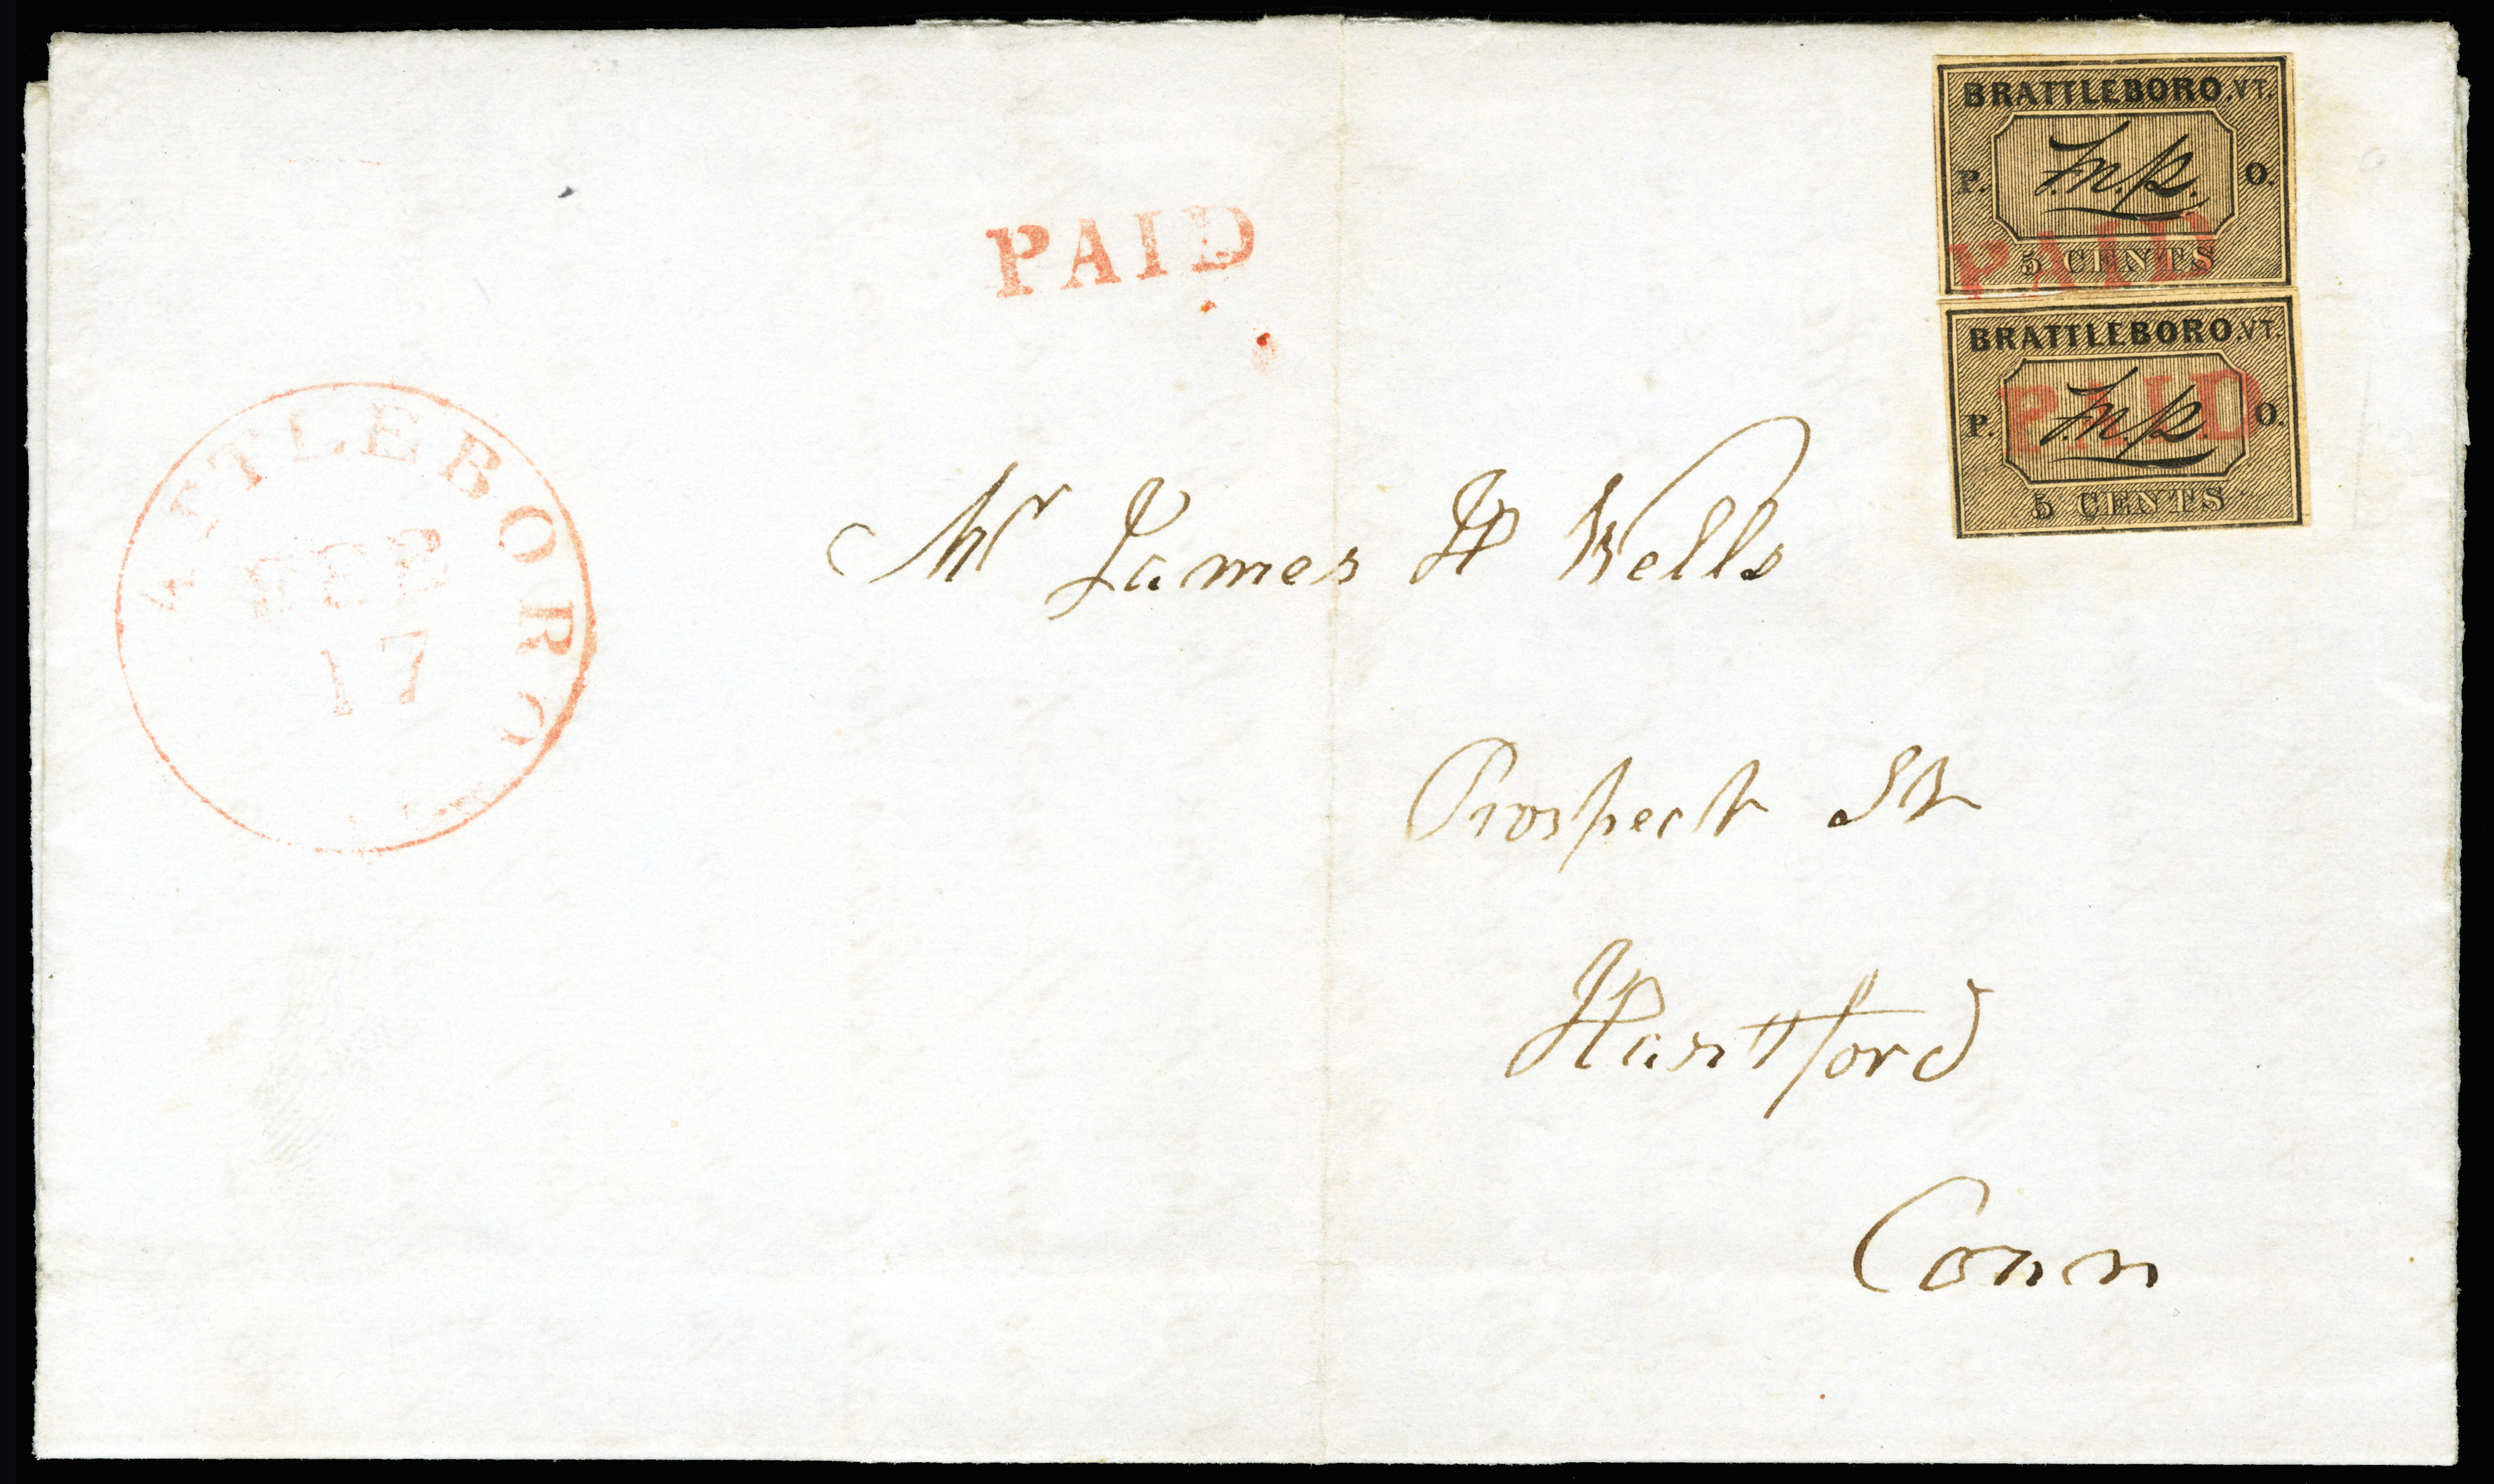 BRATTLEBORO, VT.
P. F.N.P. O.
PAID
5 CENTS
BRATTLEBORO, VT.
PAID
P. F.N.P. O.
5 CENTS
PAID
ATTLEBORO
FEB
17
Mr James H Wells
Prospect St
Hartford
Conn